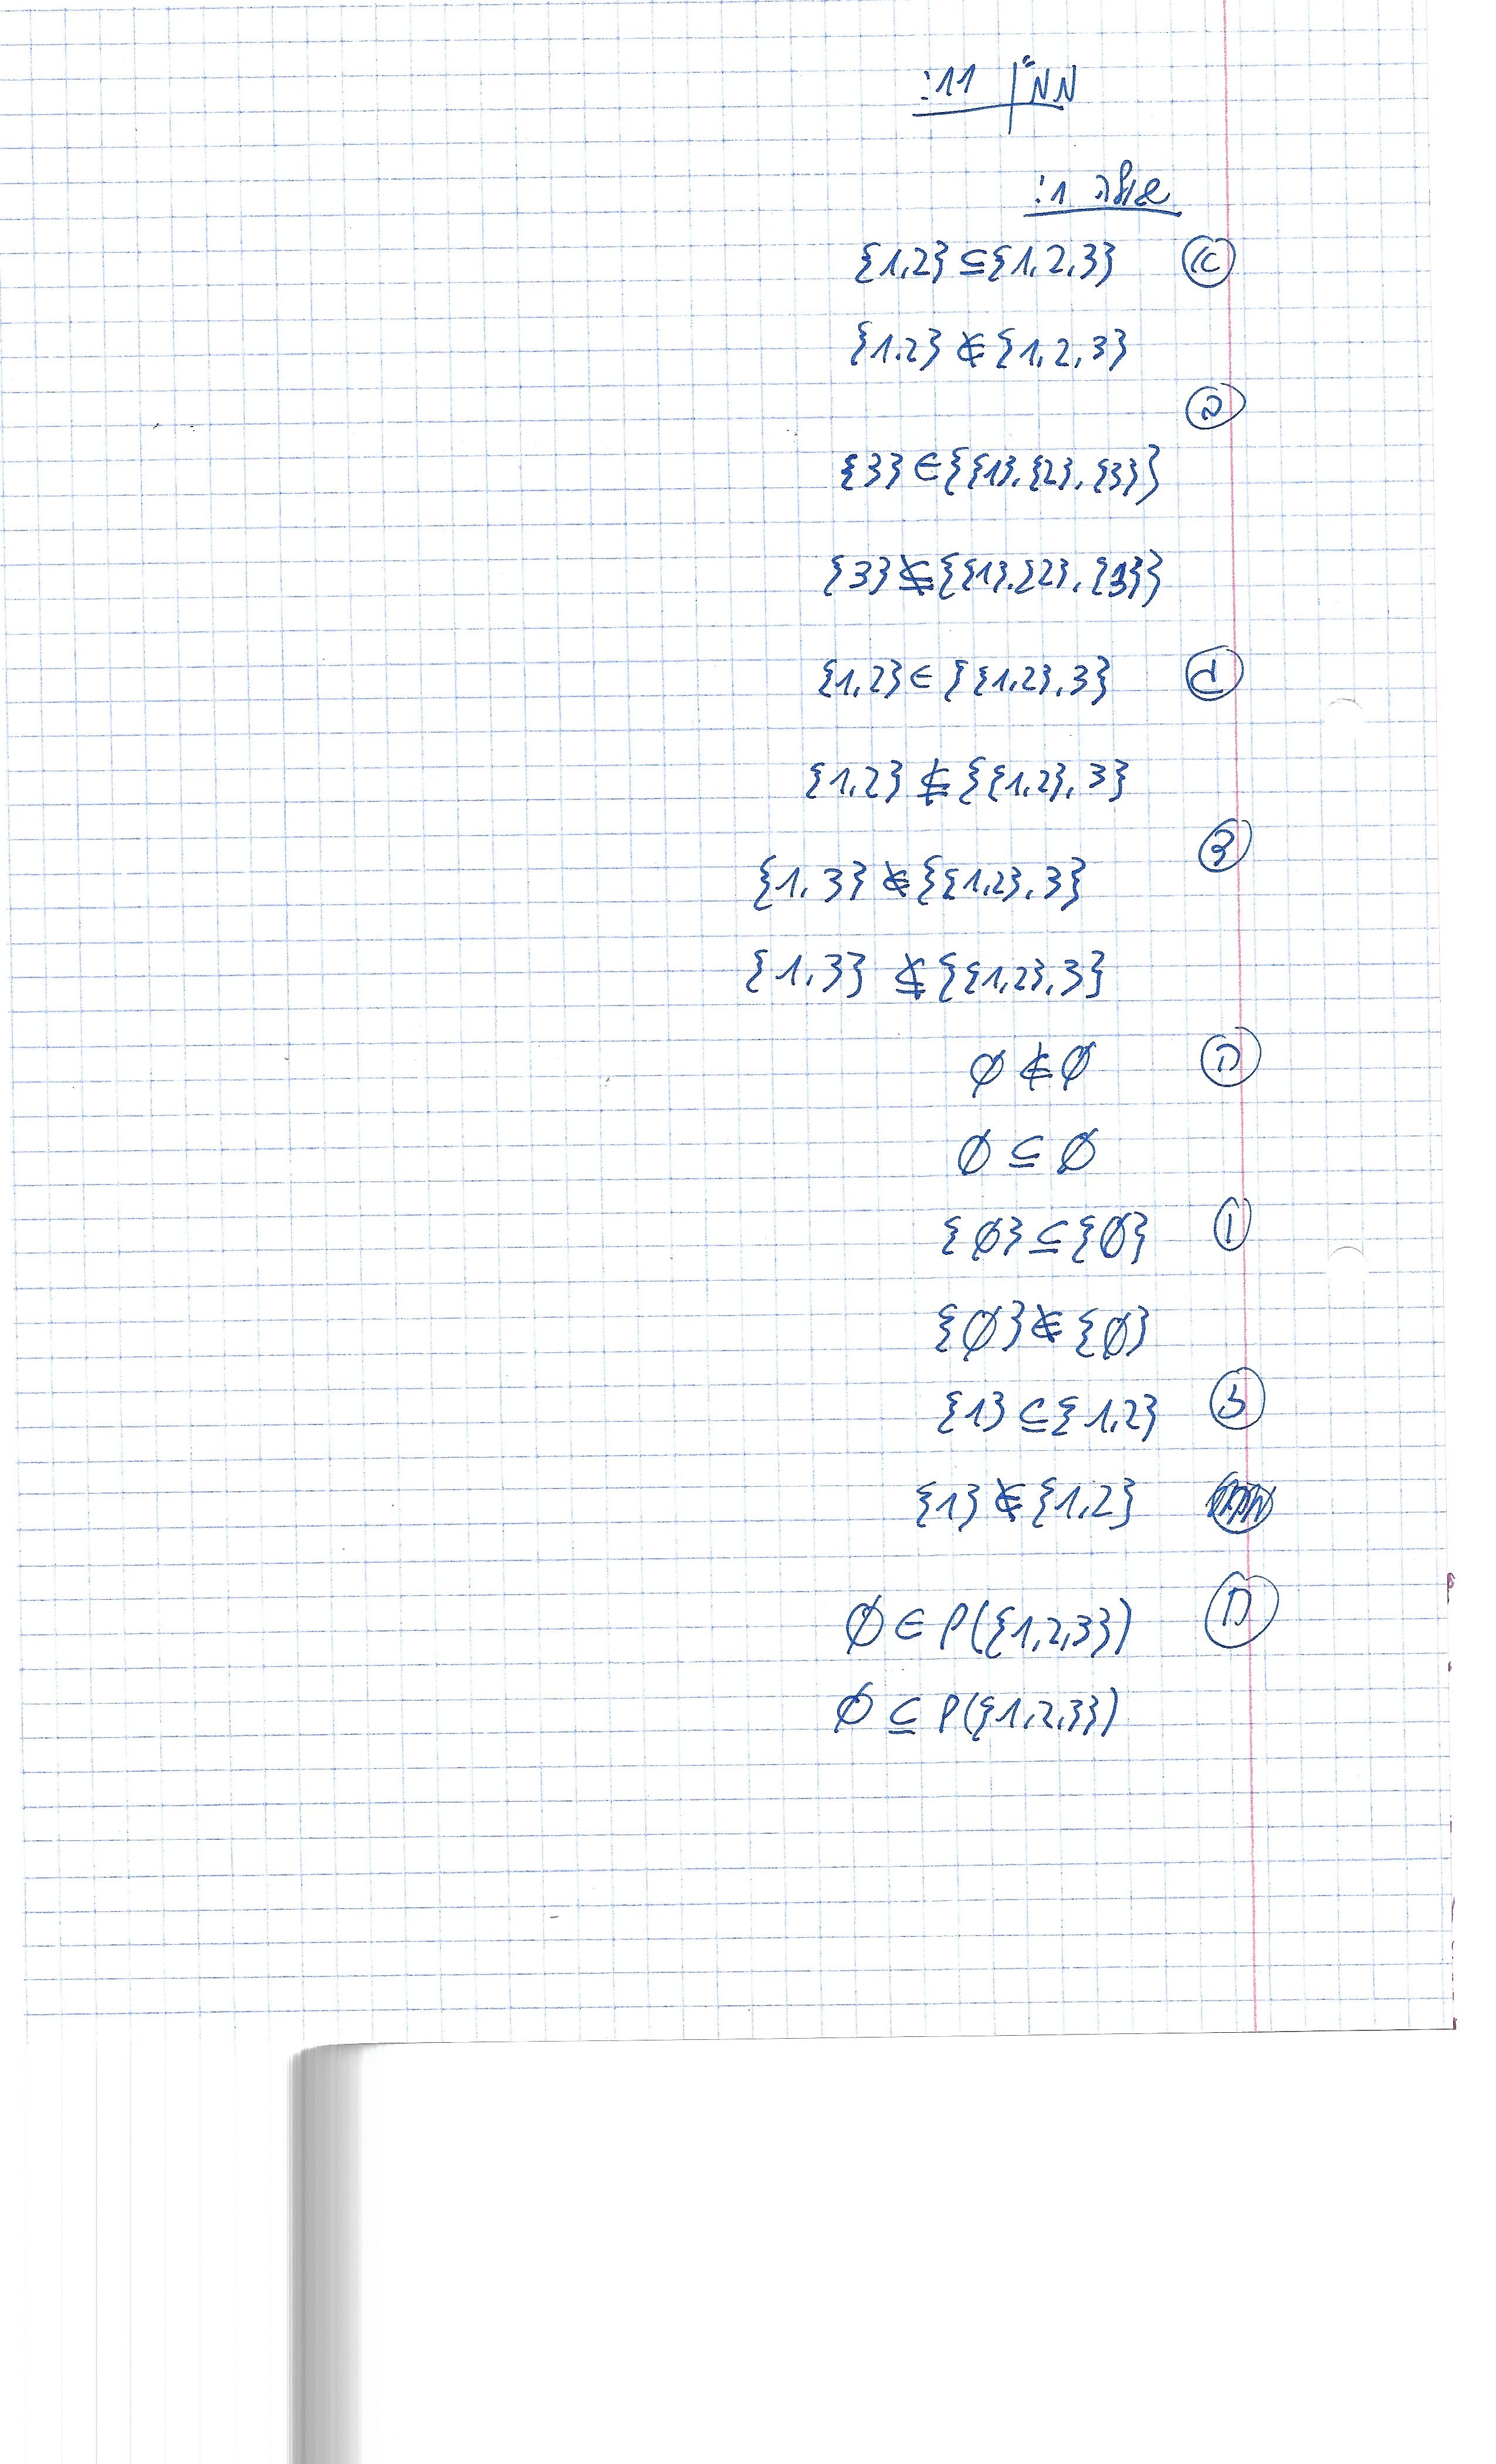 ממ"ן 11:
שאלה 1:
א {1,2} ⊆ {1,2,3}
{1.2} ∉ {1,2,3}
ב
{3} ∈ {{1},{2},{3}}
{3} ⊈ {{1},{2},{3}}
ג {1,2} ∈ {{1,2},3}
{1,2} ⊈ {{1,2},3}
ד
{1,3} ∉ {{1,2},3}
{1,3} ⊈ {{1,2},3}
ה ∅ ∉ ∅
∅ ⊆ ∅
ו {∅} ⊆ {∅}
{∅} ∉ {∅}
ז {1} ⊆ {1,2}
{1} ∉ {1,2}
ח ∅ ∈ P({1,2,3})
∅ ⊆ P({1,2,3})